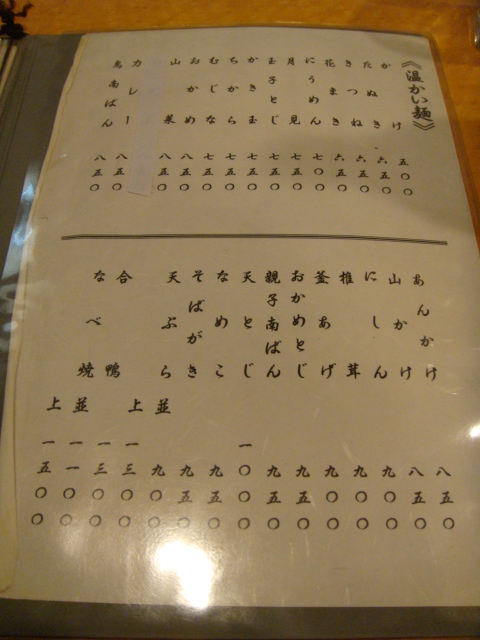 《温かい麺》
かけ 五〇〇
たぬき 六五〇
きつね 六五〇
花まき 六五〇
にうめん 七〇〇
月見 七五〇
玉子とじ 七五〇
かき玉 七五〇
ちから 七五〇
むじな 七五〇
おかめ 八五〇
山菜 八五〇
カレー 八五〇
鳥南ばん 八五〇
あんかけ 八五〇
山かけ 八五〇
にしん 九〇〇
椎茸 九〇〇
釜あげ 九〇〇
おかめとじ 九五〇
親子南ばん 九五〇
天とじ 一〇〇〇
なめこ 九五〇
そばがき 九五〇
天ぷら 九〇〇
合鴨 並 一三〇〇
上 一三〇〇
なべ焼 並 一一〇〇
上 一五〇〇